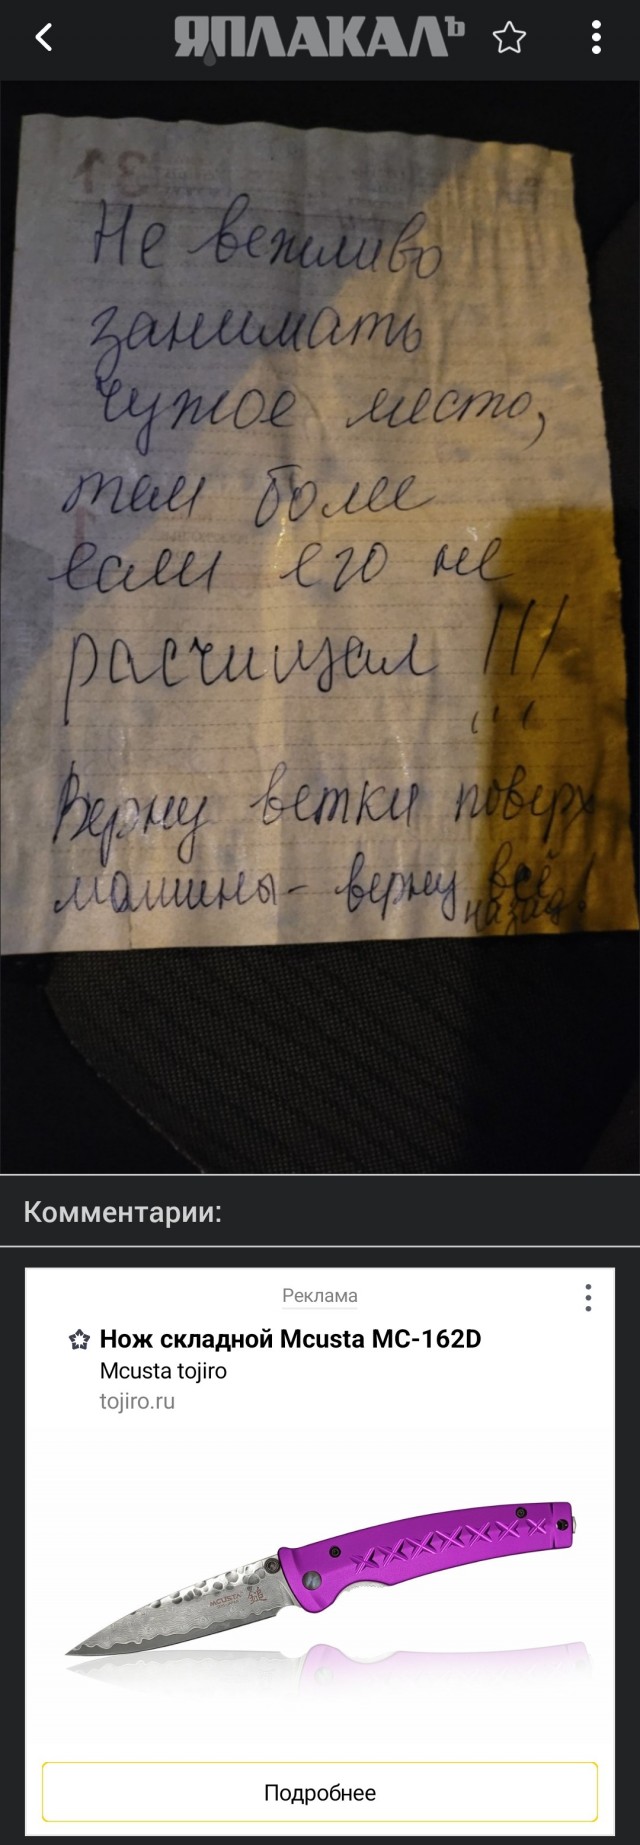 ЯПЛАКАЛЪ
31
Не вежливо
занимать
чужое место,
тем более
если его не
расчищал !!!
Верну ветки поверх
машины - верну всё
назад!
Комментарии:
Реклама
Нож складной Mcusta MC-162D
Mcusta tojiro
tojiro.ru
MCUSTA
Подробнее